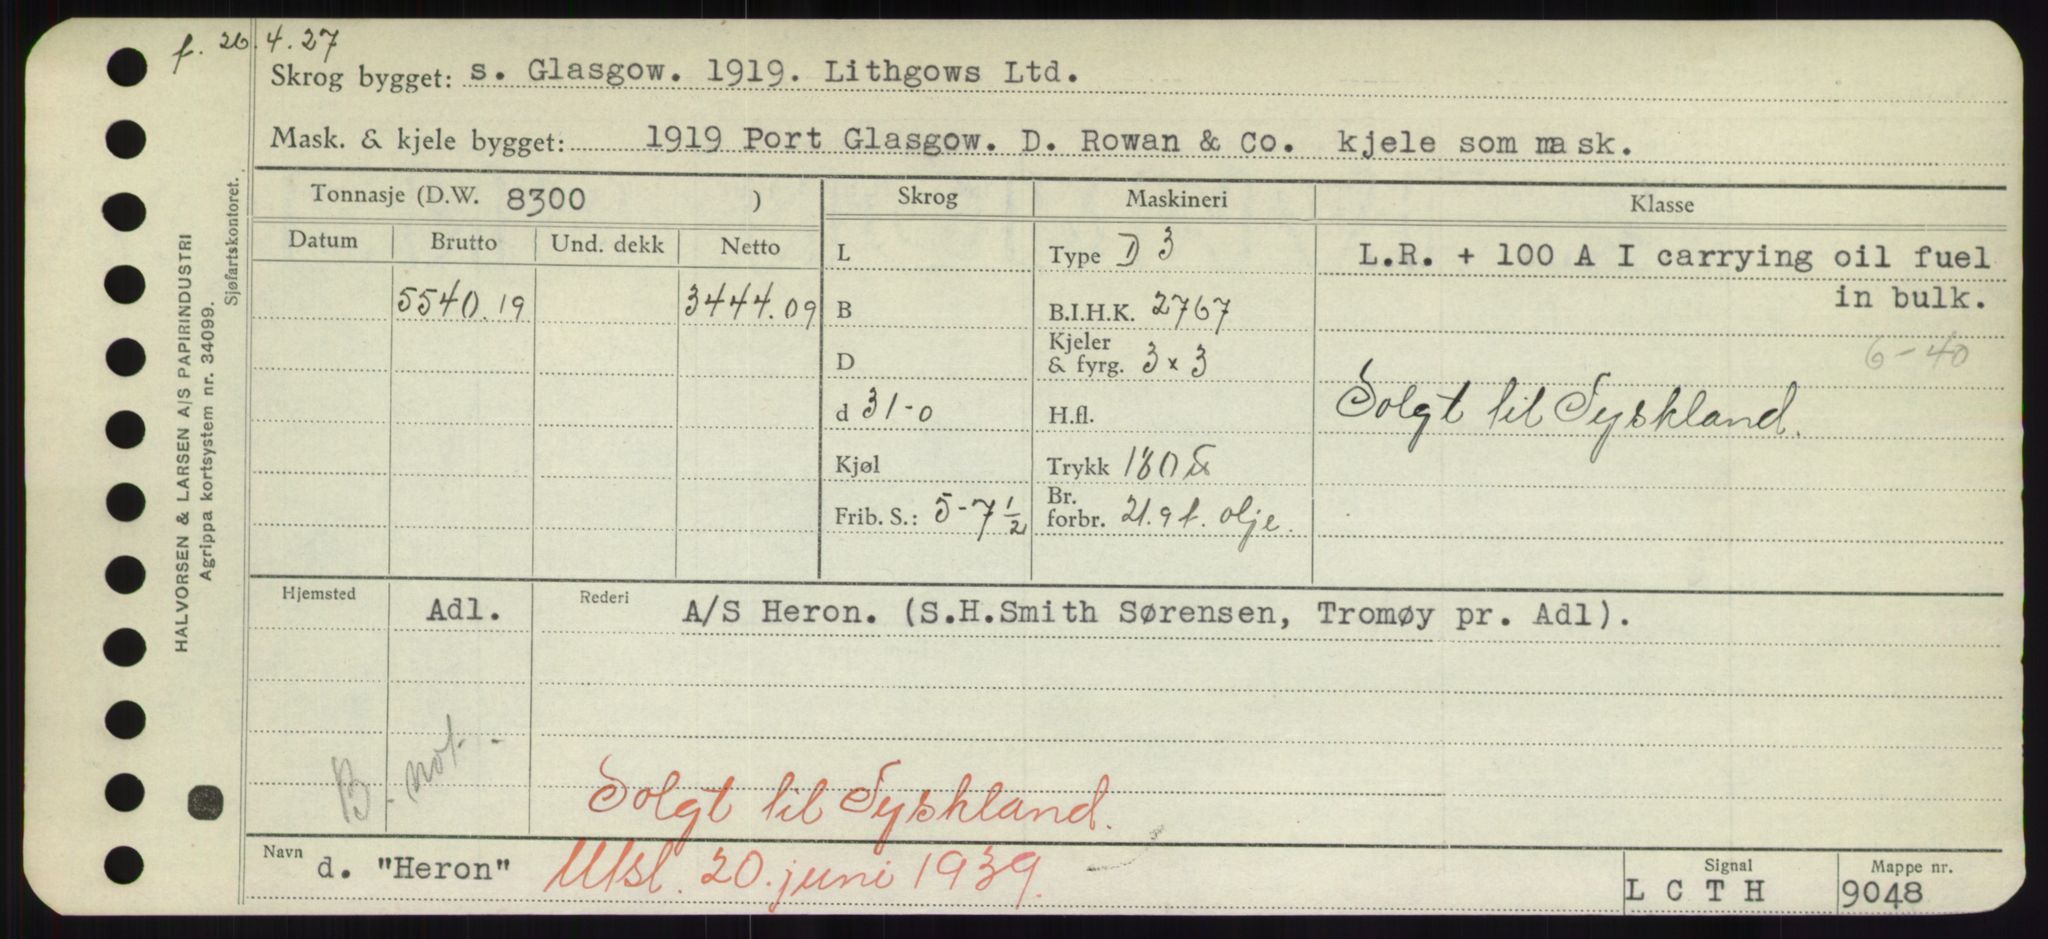 f. 26.4.27
Skrog bygget: s. Glasgow. 1919. Lithgows Ltd.
Mask. & kjele bygget: 1919 Port Glasgow. D. Rowan & Co. kjele som mask.
Tonnasje (D.W. 8300 ) Skrog Maskineri Klasse
Datum Brutto Und. dekk Netto
L Type D 3 L.R. + 100 A I carrying oil fuel
in bulk.
5540.19 3444.09 B B.I.H.K. 2767
D Kjeler & fyrg. 3 x 3 6-40
d 31-0 H.fl. Solgt til Tyskland.
Kjøl Trykk 180 ℔
Frib. S.: 5-7 1/2 Br. forbr. 21.9 t. olje.
Hjemsted Adl. Rederi A/S Heron. (S.H.Smith Sørensen, Tromøy pr. Adl).
B. not.
Solgt til Tyskland.
Navn d. "Heron" Utsl. 20. juni 1939. Signal L C T H Mappe nr. 9048
HALVORSEN & LARSEN A/S PAPIRINDUSTRI
Agrippa kortsystem nr. 34099.
Sjøfartskontoret.